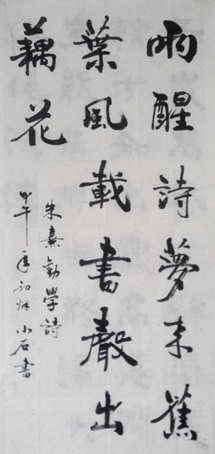 雨醒詩夢来蕉
葉風載書聲出
藕花
朱熹勸學詩
甲午年初秋小石書